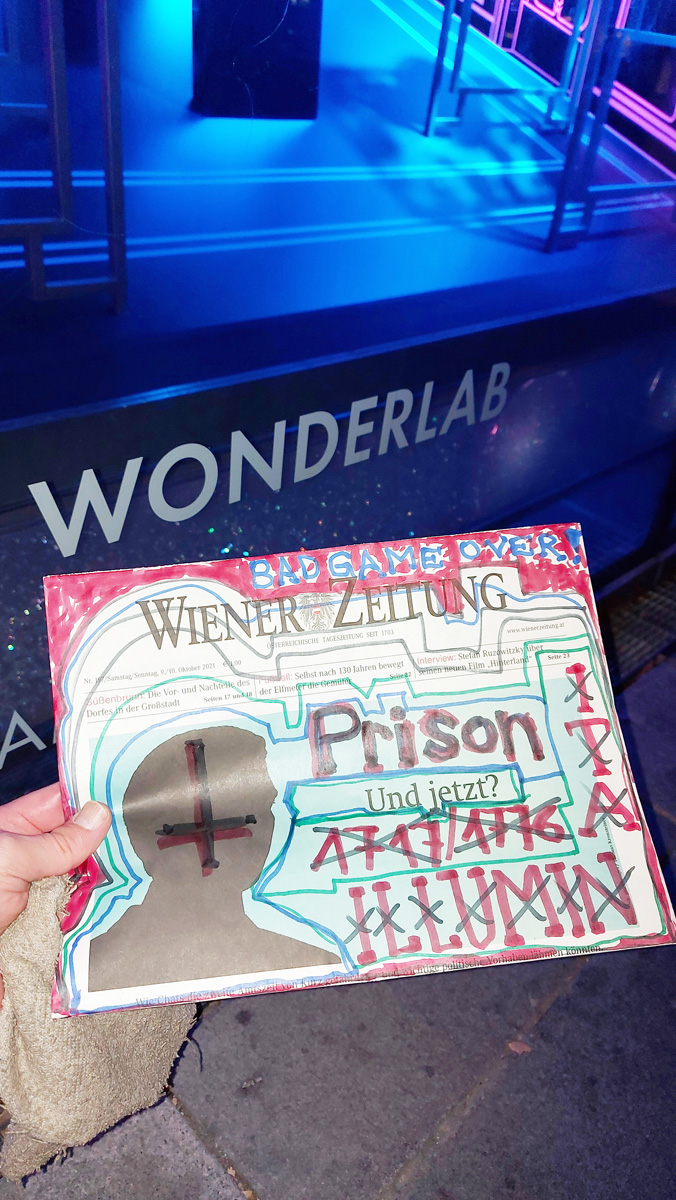 WONDERLAB
A
BAD GAME OVER!
WIENER ZEITUNG
ÖSTERREICHISCHE TAGESZEITUNG SEIT 1703
www.wienerzeitung.at
Nr. 197/Samstag/Sonntag, 9./10. Oktober 2021
Süßenbrunn: Die Vor- und Nachteile des
Dorfes in der Großstadt Seiten 17 und 18
Selbst nach 130 Jahren bewegt
der Elfmeter die Gemüter
Interview: Stefan Ruzowitzky über
seinen neuen Film „Hinterland" Seite 23
Prison
Und jetzt?
1717/1776
ILLUMIN
ITA
Wie Chats die zweite Amtszeit von Kurz
wichtige politische Vorhaben lähmen könnten.